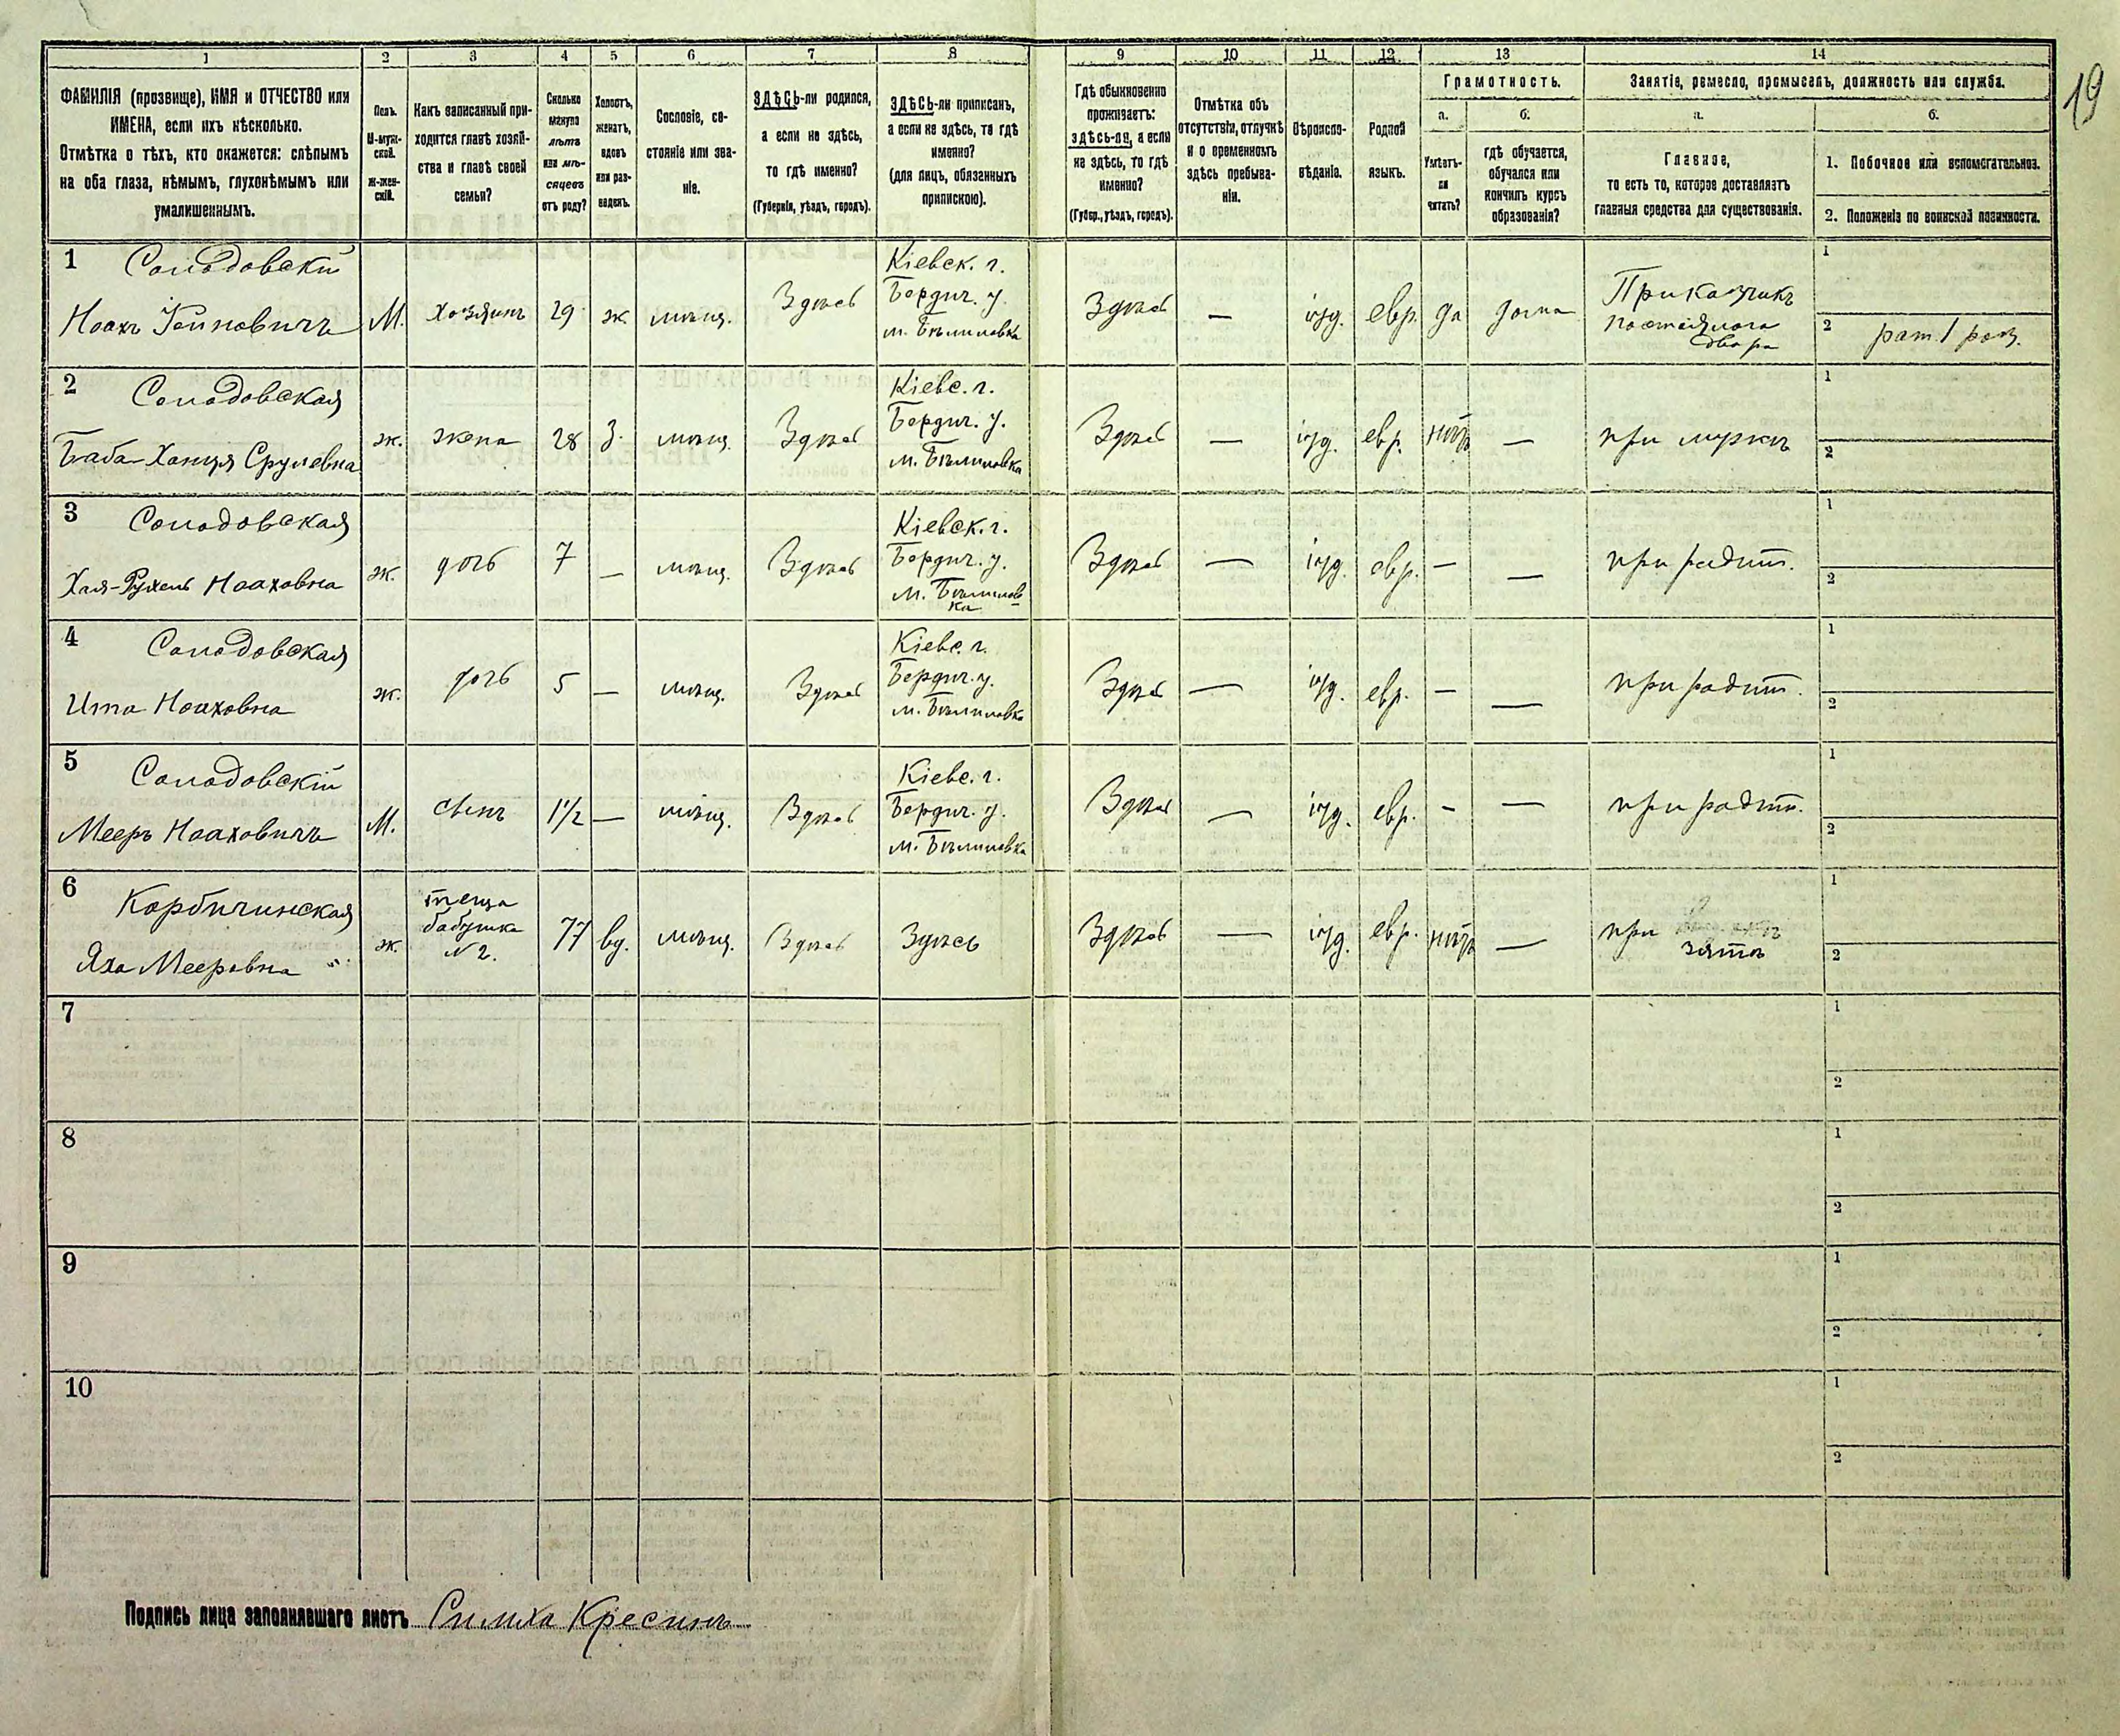 19
1 2 3 4 5 6 7 8 9 10 11 12 13 14
ФАМИЛІЯ (прозвище), ИМЯ и ОТЧЕСТВО или
ИМЕНА, если ихъ нѣсколько.
Отмѣтка о тѣхъ, кто окажется: слѣпымъ
на оба глаза, нѣмымъ, глухонѣмымъ или
умалишеннымъ.
Полъ.
М-муж-
ской.
Ж-жен-
скій.
Какъ записанный при-
ходится главѣ хозяй-
ства и главѣ своей
семьи?
Сколько
минуло
лѣтъ
или мѣ-
сяцевъ
отъ роду?
Холостъ,
женатъ,
вдовъ
или раз-
веденъ.
Сословіе, со-
стояніе или зва-
ніе.
ЗДѢСЬ-ли родился,
а если не здѣсь,
то гдѣ именно?
(Губернія, уѣздъ, городъ).
ЗДѢСЬ-ли приписанъ,
а если не здѣсь, то гдѣ
именно?
(для лицъ, обязанныхъ
припискою).
Гдѣ обыкновенно
проживаетъ:
здѣсь-ли, а если
не здѣсь, то гдѣ
именно?
(Губер., уѣздъ, городъ).
Отмѣтка объ
отсутствіи, отлучкѣ
и о временномъ
здѣсь пребыва-
ніи.
Вѣроиспо-
вѣданіе.
Родной
языкъ.
Грамотность.
а.
Умѣетъ-
ли
читать?
б.
гдѣ обучается,
обучался или
кончилъ курсъ
образованія?
Занятіе, ремесло, промыселъ, должность или служба.
а.
Главное,
то есть то, которое доставляетъ
главныя средства для существованія.
б.
1. Побочное или вспомогательное.
2. Положеніе по воинской повинности.
1 Солодовскій
Ноахъ
М. хозяинъ 29 ж. мѣщ. Здѣсь
Кіевск. г.
Бердич. у.
м. Бѣлиловка
Здѣсь — іуд. евр. да дома
Приказчикъ
постоялаго
двора
1
2 рат. 1 раз.
2 Солодовская
Баба-Ханця Срулевна
ж. жена 28 З. мѣщ. Здѣсь
Кіевс. г.
Бердич. у.
м. Бѣлиловка
Здѣсь — іуд. евр. нѣтъ — при мужѣ
1
2
3 Солодовская
Хая-Рухель Ноаховна
ж. дочь 7 — мѣщ. Здѣсь
Кіевск. г.
Бердич. у.
м. Бѣлилов
ка
Здѣсь — іуд. евр. — — при родит.
1
2
4 Солодовская
Ита Ноаховна
ж. дочь 5 — мѣщ. Здѣсь
Кіевс. г.
Бердич. у.
м. Бѣлиловка
Здѣсь — іуд. евр. — — при родит.
1
2
5 Солодовскій
Мееръ Ноаховичъ
М. сынъ 1½ — мѣщ. Здѣсь
Кіевс. г.
Бердич. у.
м. Бѣлиловка
Здѣсь — іуд. евр. - — при родит.
1
2
6 Корбичинская
Яха Мееровна
ж.
теща
бабушка
№ 2.
77 вд. мѣщ. Здѣсь Здѣсь Здѣсь — іуд. евр. нѣтъ — при
зятѣ
1
2
7
1
2
8
1
2
9
1
2
10
1
2
Подпись лица заполнявшаго листъ Симха Кресинъ